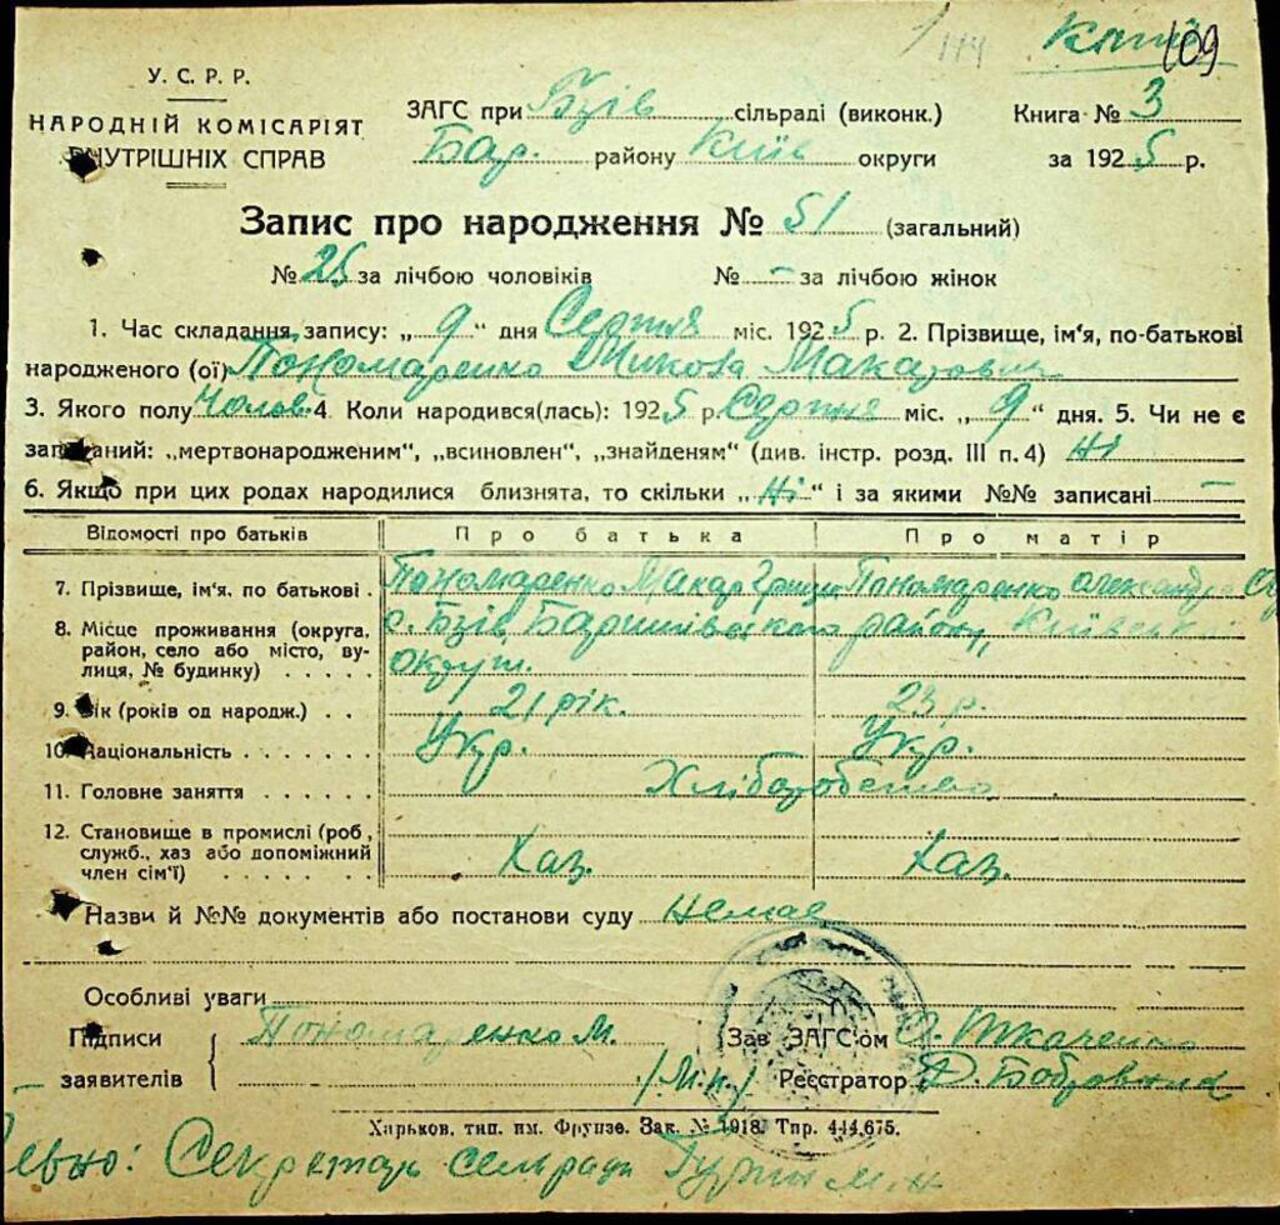 114 Копія 109
У. С. Р. Р.
НАРОДНІЙ КОМІСАРІЯТ
ВНУТРІШНІХ СПРАВ
ЗАГС при Бзів сільраді (виконк.)
Бар. району Київ округи
Книга № 3
за 1925 р.
Запис про народження № 51 (загальний)
№ 25 за лічбою чоловіків № – за лічбою жінок
1. Час складання запису: „ 9 “ дня Серпня міс. 1925 р. 2. Прізвище, ім'я, по-батькові
народженого (ої) Пономаренко Микола Макарович
3. Якого полу Чолов. 4 Коли народився(лась): 1925 р. Серпня міс. „ 9 “ дня. 5. Чи не є
записаний: „мертвонародженим“, „всиновлен“, „знайденям“ (див. інстр. розд. III п. 4) Ні
6. Якщо при цих родах народилися близнята, то скільки „ Ні “ і за якими №№ записані –
Відомості про батьків Про батька Про матір
7. Прізвище, ім'я, по батькові . Пономаренко Макар Пономаренко Олександра
8. Місце проживання (округа, район, село або місто, вулиця, № будинку) . . . . . с. Бзів Баришівського району, Київської
округи.
9. Вік (років од народж.) . . 21 рік. 23 р.
10. Національність . . . . . . Укр. Укр.
11. Головне заняття . . . . . . Хліборобство
12. Становище в промислі (роб, служб., хаз або допоміжний член сім'ї) . . . . . . Хаз. Хаз.
Назви й №№ документів або постанови суду Немає
Особливі уваги
Підписи Пономаренко М. Зав ЗАГС'ом О. Ткаченко
заявителів /М.п./ Реєстратор Д. Бобровник
Харьков, тип. им. Фрунзе. Зак. № 1918. Тир. 444.675.
Секретар сельради